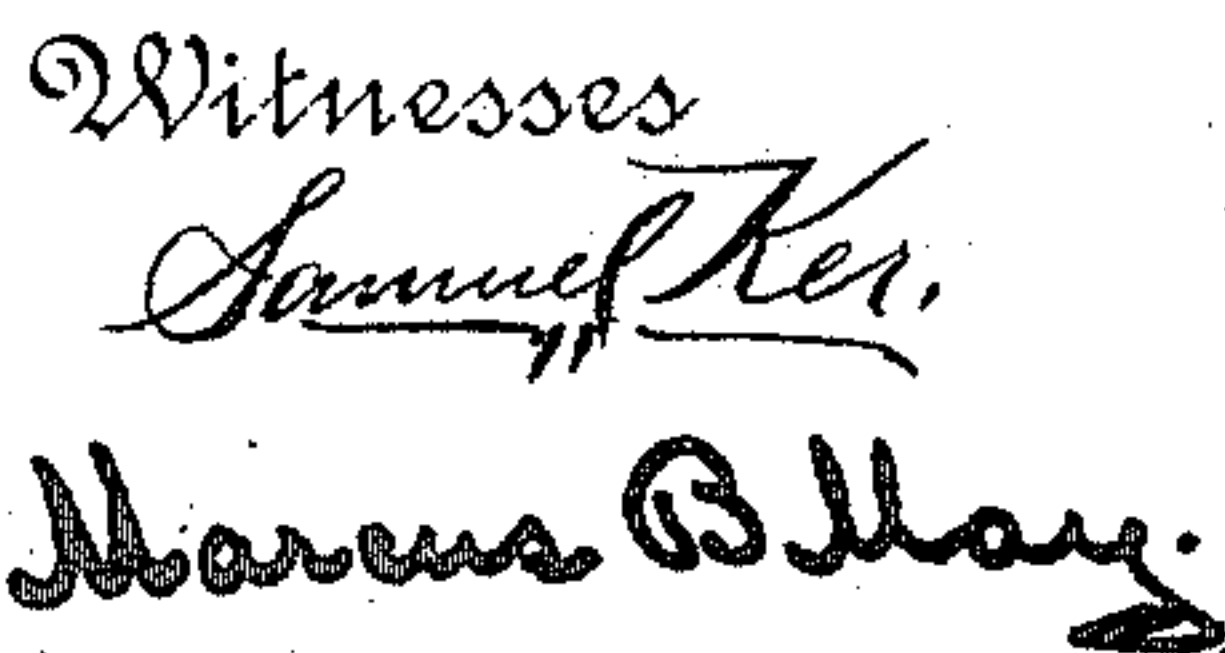 Witnesses
Samuel Ker.
Marcus B May.